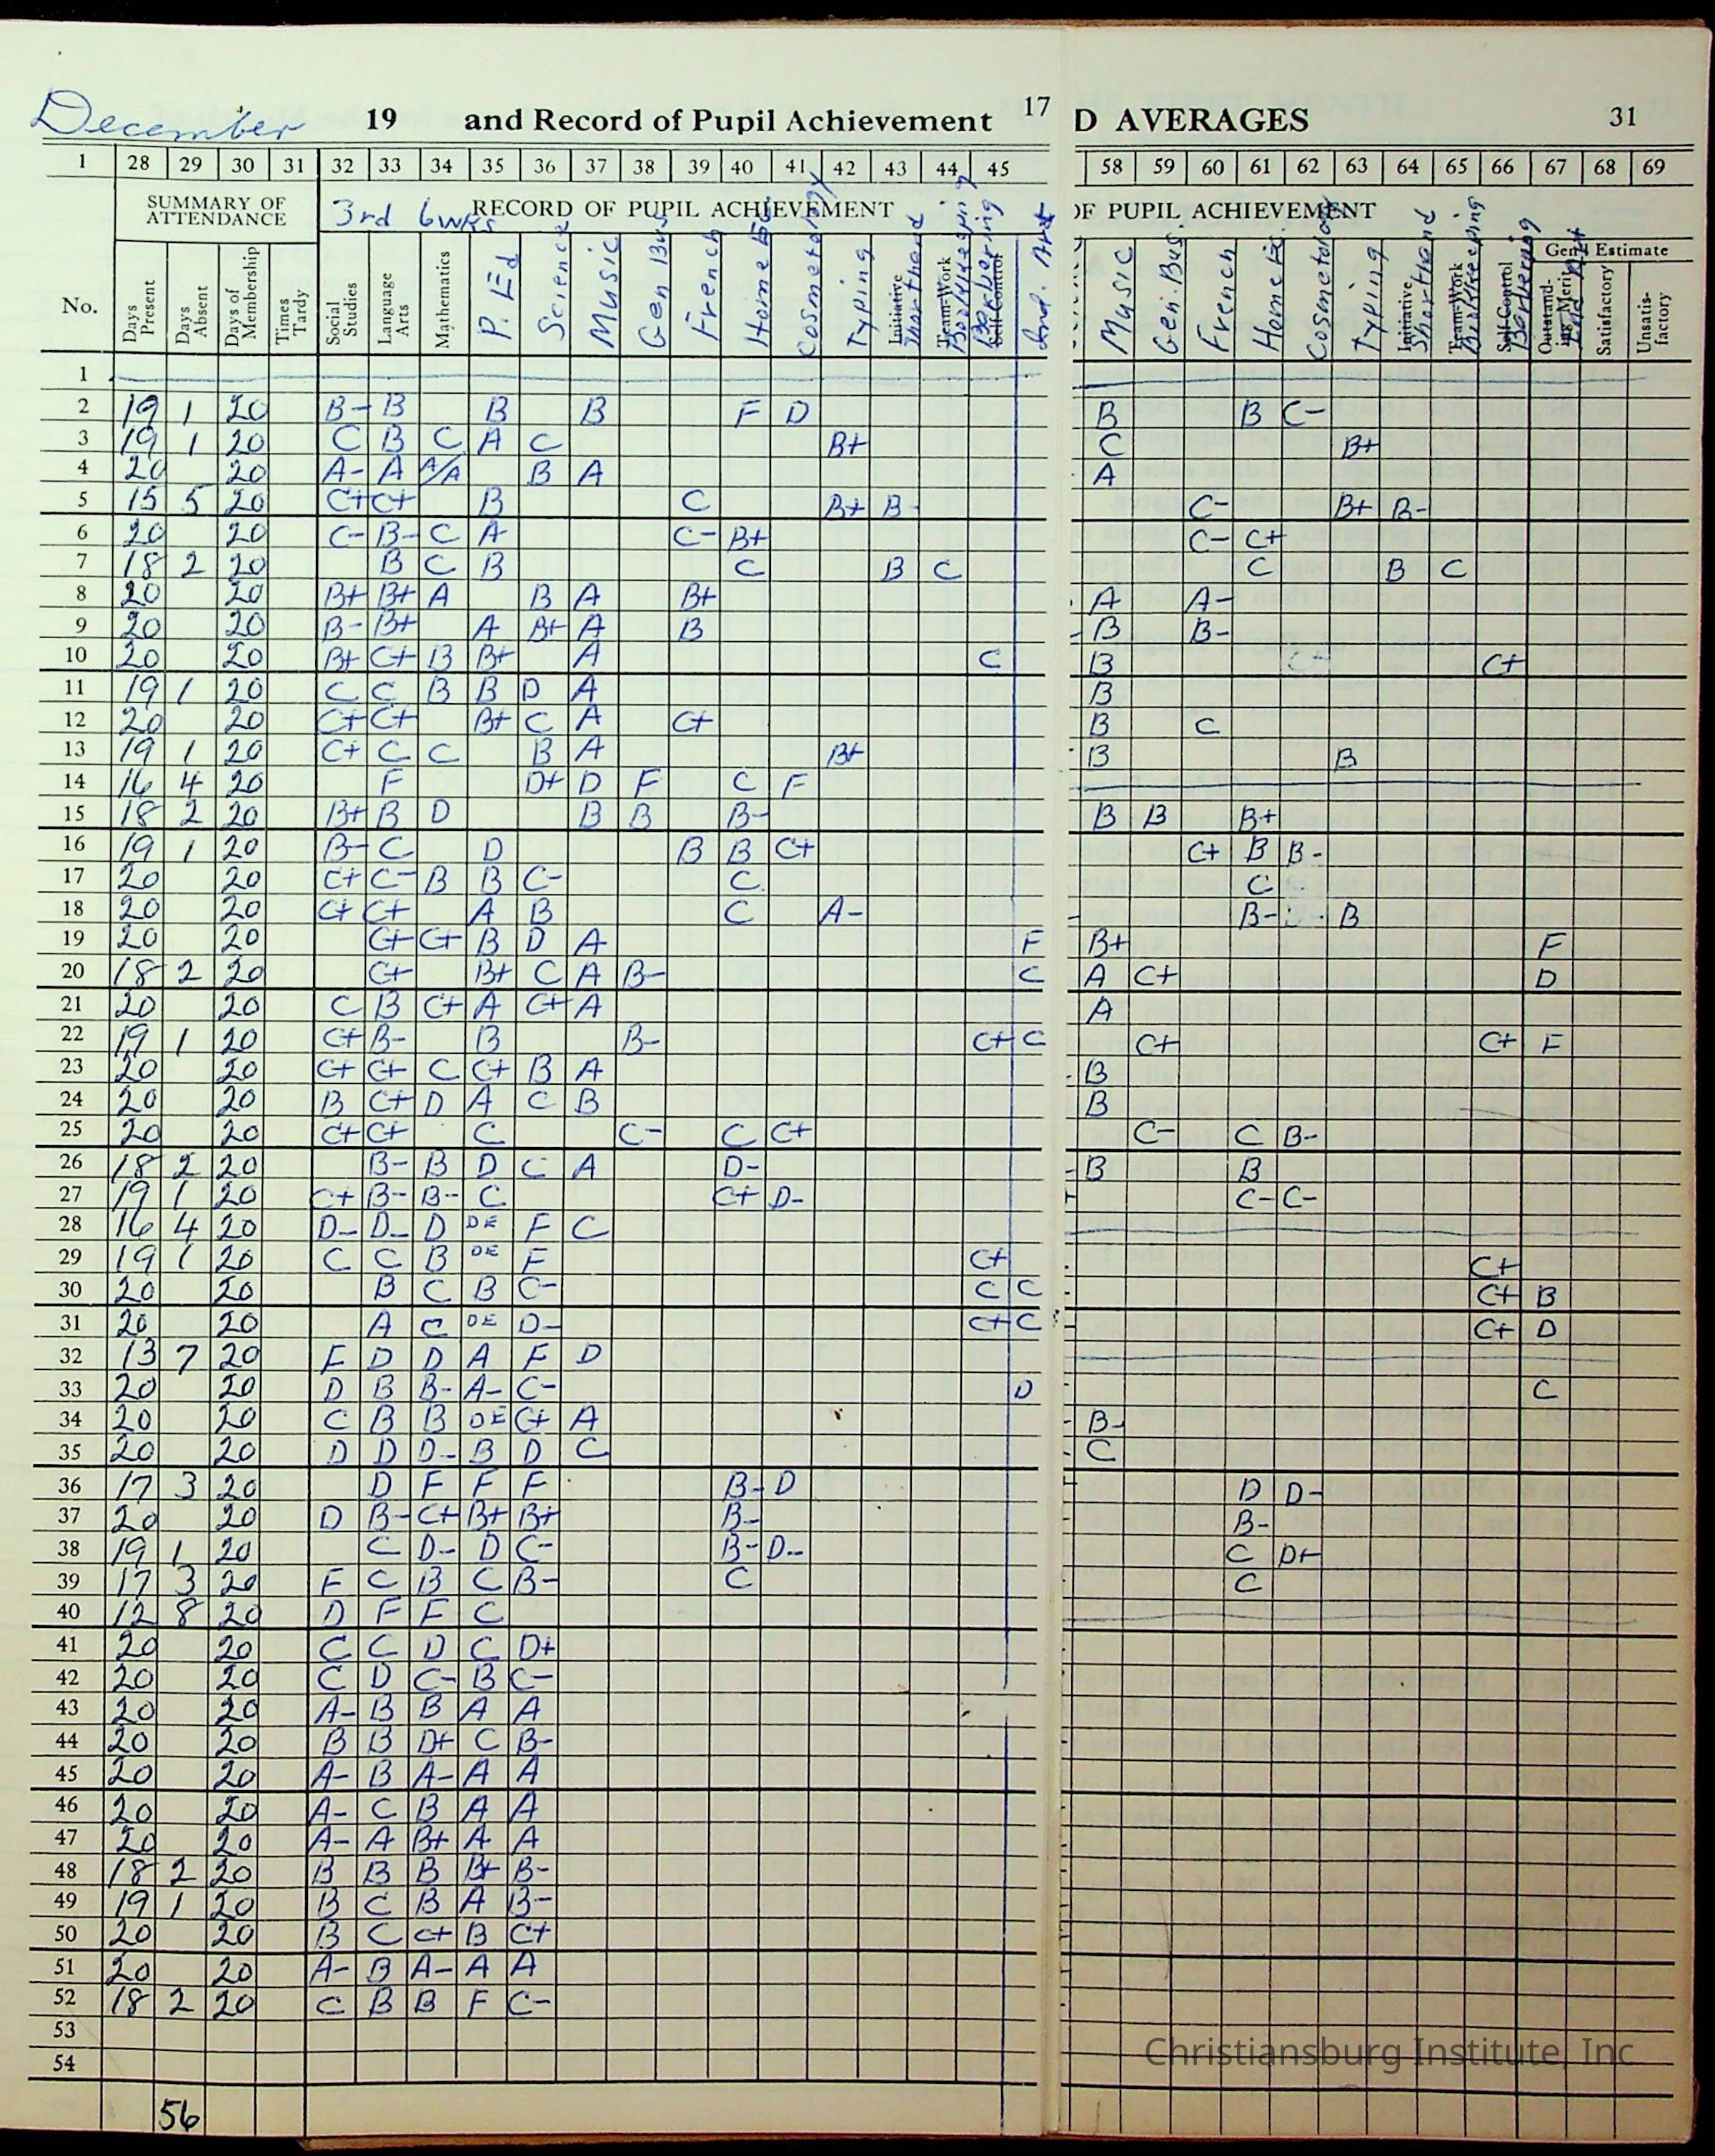 December 19 and Record of Pupil Achievement 17 D AVERAGES 31
1 28 29 30 31 32 33 34 35 36 37 38 39 40 41 42 43 44 45 58 59 60 61 62 63 64 65 66 67 68 69
SUMMARY OF ATTENDANCE 3rd 6wks RECORD OF PUPIL ACHIEVEMENT OF PUPIL ACHIEVEMENT
Gen'l Estimate
No. Days Present Days Absent Days of Membership Times Tardy Social Studies Language Arts Mathematics P. Ed Science Music Gen Bus French Home Ec Cosmetology Typing Initiative Shorthand Team-Work Bookkeeping Self-Control Ind. Art Music Gen. Bus. French Home Ec. Cosmetology Typing Initiative Shorthand Team-Work Bookkeeping Self-Control Outstanding Merit Satisfactory Unsatisfactory
1
2 19 1 20 B- B B B F D B B C-
3 19 1 20 C B C A C B+ C B+
4 20 20 A- A A/A B A A
5 15 5 20 C+ C+ B C B+ B- C- B+ B-
6 20 20 C- B- C A- C- B+ C- C+
7 18 2 20 B C B C B C C B C
8 20 20 B+ B+ A B A B+ A A-
9 20 20 B- B+ A B+ A B B B-
10 20 20 B+ C+ B B+ A C B C+
11 19 1 20 C C B B D A B
12 20 20 C+ C+ B+ C A C+ B C
13 19 1 20 C+ C C B A B+ B B
14 16 4 20 F D+ D F C F
15 18 2 20 B+ B D B B B- B B B+
16 19 1 20 B- C D B B C+ C+ B B-
17 20 20 C+ C- B B C- C C
18 20 20 C+ C+ A B C A- B- B
19 20 20 C+ C+ B D A F B+ F
20 18 2 20 C+ B+ C A B- C A C+ D
21 20 20 C B C+ A C+ A A
22 19 1 20 C+ B- B B- C+ C C+ C+ F
23 20 20 C+ C+ C C+ B A B
24 20 20 B C+ D A C B B
25 20 20 C+ C+ C C- C C+ C- C B-
26 18 2 20 B- B D C A D- B B
27 19 1 20 C+ B- B- C C+ D- C- C-
28 16 4 20 D- D- D DE F C
29 19 1 20 C C B DE F C+ C+
30 20 20 B C B C- C C C+ B
31 20 20 A C DE D- C+ C C+ D
32 13 7 20 F D D A F D
33 20 20 D B B- A- C- D C
34 20 20 C B B DE C+ A B-
35 20 20 D D D- B D C C
36 17 3 20 D F F F B- D D D-
37 20 20 D B- C+ B+ B+ B- B-
38 19 1 20 C D- D C- B- D- C D+
39 17 3 20 F C B C B- C C
40 12 8 20 D F F C
41 20 20 C C D C D+
42 20 20 C D C- B C-
43 20 20 A- B B A A
44 20 20 B B D+ C B-
45 20 20 A- B A- A A
46 20 20 A- C B A A
47 20 20 A- A B+ A A
48 18 2 20 B B B B+ B-
49 19 1 20 B C B A B-
50 20 20 B C C+ B C+
51 20 20 A- B A- A A
52 18 2 20 C B B F C-
53
54
56
Christiansburg Institute, Inc